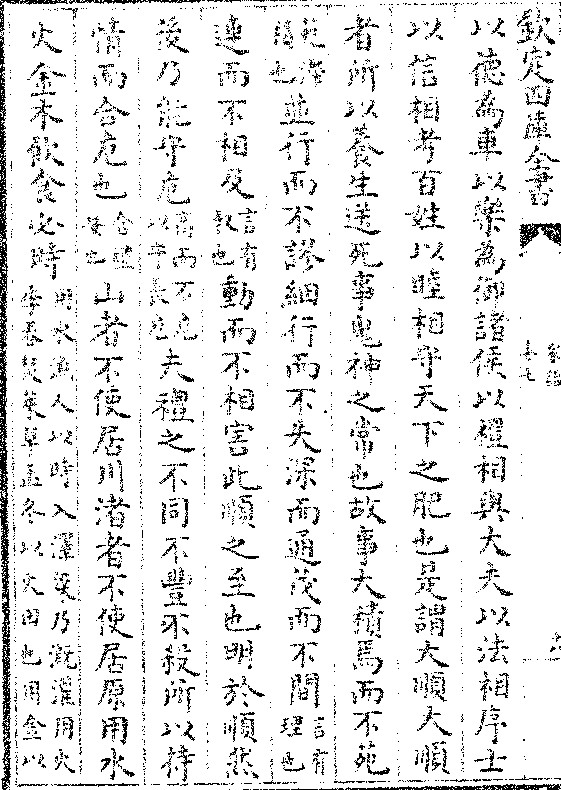 欽定四庫全書
家語
卷七
以德為車以樂為御諸侯以禮相與大夫以法相序士
以信相考百姓以睦相守天下之肥也是謂大順大順
者所以養生送死事鬼神之常也故事大積焉而不苑
苑滯積也並行而不謬細行而不失深而通茂而不間言有理也
連而不相及言有敘也動而不相害此順之至也明於順然
後乃能守危高而不危以守長危夫禮之不同不豐不殺所以持
情而合危也合禮安也山者不使居川渚者不使居原用水
火金木飲食必時用水漁人以時入澤梁乃溉灌用火季春焚萊草孟冬以火田也用金以